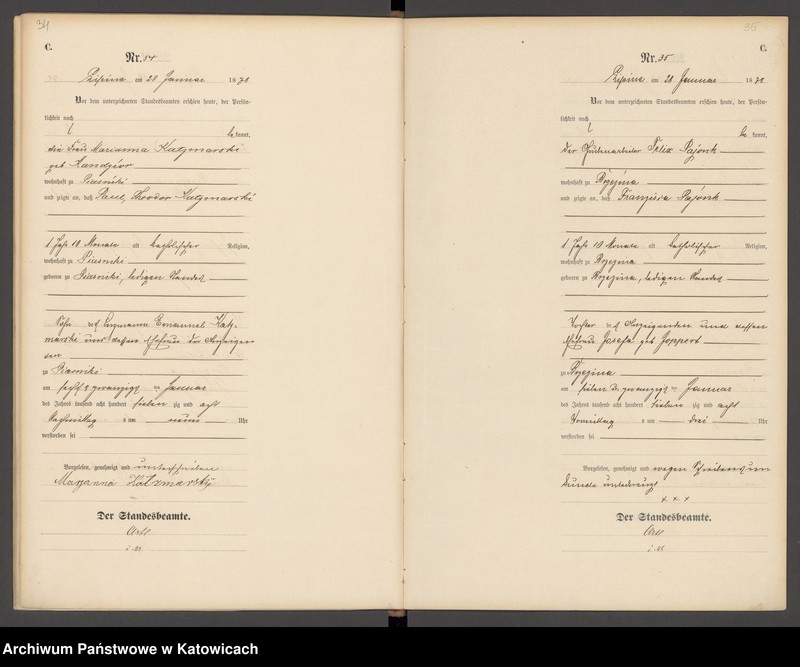 34
C.
Nr. 34
am 28 Januar 1878
Vor dem unterzeichneten Standesbeamten erschien heute, der Persön-
lichkeit nach
be kannt,
die Frau Marianna Katzmarski
geb
wohnhaft zu Piasniki
und zeigte an, daß Paul, Theodor Katzmarski
1 Jahr 10 Monate alt katholischer Religion,
wohnhaft zu Piasniki
geboren zu Piasniki, ledigen Standes
Sohn des Emanuel Katz-
marski und dessen Ehefrau der Anzeigen
den
zu Piasniki
am sechs & zwanzigsten Januar
des Jahres tausend acht hundert sieben zig und acht
Nachmittag s um neun Uhr
verstorben sei
Vorgelesen, genehmigt und unterschrieben
Maryanna Katzmarsky
Der Standesbeamte.
35
C.
Nr. 35
am 28 Januar 1878
Vor dem unterzeichneten Standesbeamten erschien heute, der Persön-
lichkeit nach
be kannt,
der Hüttenarbeiter Felix Pajonk
wohnhaft zu Brzezina
und zeigte an, daß Franziska Pajonk
1 Jahr 10 Monate alt katholischer Religion,
wohnhaft zu Brzezina
geboren zu Brzezina, ledigen Standes
Tochter des Anzeigenden und dessen
Ehefrau Josefa geb
zu Brzezina
am sieben & zwanzigsten Januar
des Jahres tausend acht hundert sieben zig und acht
Vormittag s um drei Uhr
verstorben sei
Vorgelesen, genehmigt und wegen Schreibensun
kunde unterkreuzt
x x x
Der Standesbeamte.
Archiwum Państwowe w Katowicach